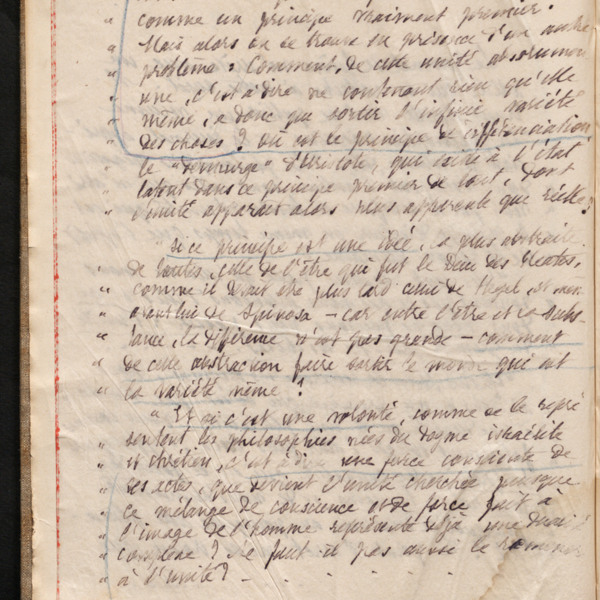 " comme un principe vraiment premier.
" Mais alors on se trouve en présence d'un autre
" problème : Comment, de cette unité absolument
" une, c'est à dire ne contenant rien qu'elle
" même, a donc pu sortir l'infinie variété
" des choses ? où est le principe de différenciation
" le "démiurge" d'Aristote, qui soit à l'état
" latent dans ce principe premier de tout, dont
" l'unité apparaît alors plus apparente que réelle ?
" Si ce principe est une idée, la plus abstraite
" de toutes, celle de l'être qui fut le Dieu des Eléates,
" comme il devait être plus tard celui de Hegel, et
" avant lui de Spinosa – car entre l'être et la subs-
" tance, la différence n'est pas grande – comment
" de cette abstraction faire sortir le monde qui est
" la variété même ?
" Et si c'est une volonté, comme se le repré
" sentent les philosophies nées du dogme israëlite
" et chrétien, c'est à dire une force consciente de
" ses actes, que devient l'unité cherchée puisque
" ce mélange de conscience et de force fait à
" l'image de l'homme représente déjà une dualité
" complexe ? Ne faut il pas aussi le ramener
" à l'unité ? – . . . .